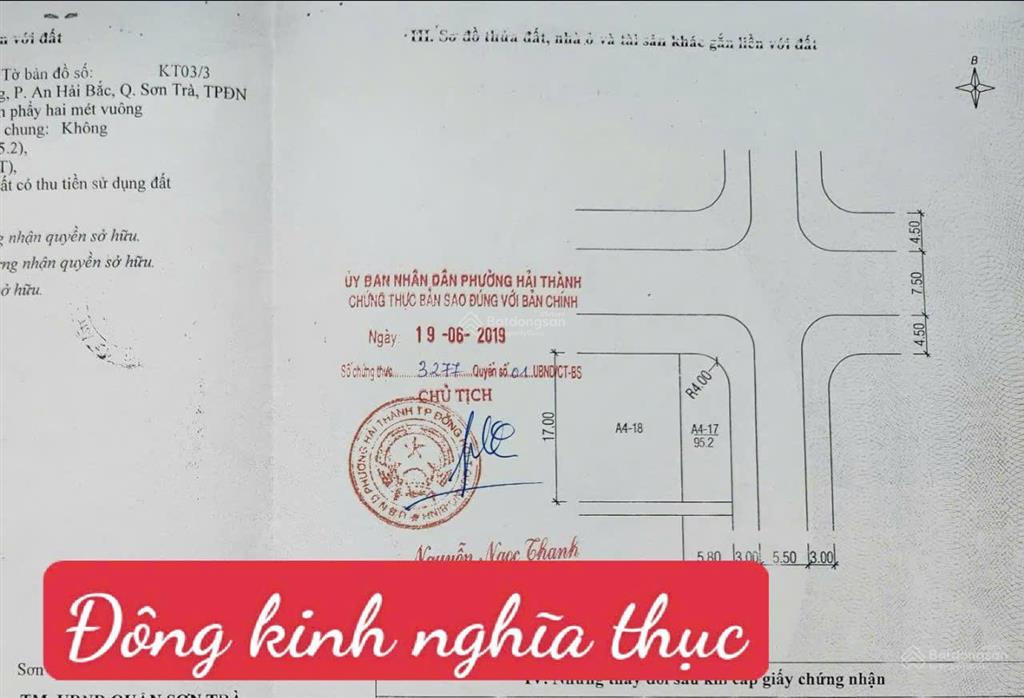 với đất
Tờ bản đồ số: KT03/3
P. An Hải Bắc, Q. Sơn Trà, TPĐN
phẩy hai mét vuông
chung: Không
5.2),
T),
ất có thu tiền sử dụng đất
nhận quyền sở hữu.
ng nhận quyền sở hữu.
sở hữu.
III. Sơ đồ thửa đất, nhà ở và tài sản khác gắn liền với đất
B
4.50
7.50
4.50
ỦY BAN NHÂN DÂN PHƯỜNG HẢI THÀNH
CHỨNG THỰC BẢN SAO ĐÚNG VỚI BẢN CHÍNH
Batdongsan
Ngày 19 -06- 2019
Số chứng thực 3277 Quyển số 01 UBND/CT-BS
CHỦ TỊCH
R4.00
17.00
A4-18
A4-17
95.2
U.B.N.D PHƯỜNG HẢI THÀNH T.P ĐỒNG
Nguyễn Ngọc Thanh
5.80 3.00 5.50 3.00
Đông kinh nghĩa thục
Batdongsan
Sơn
TM. UBND QUẬN SƠN TRÀ
IV. Những thay đổi sau khi cấp giấy chứng nhận